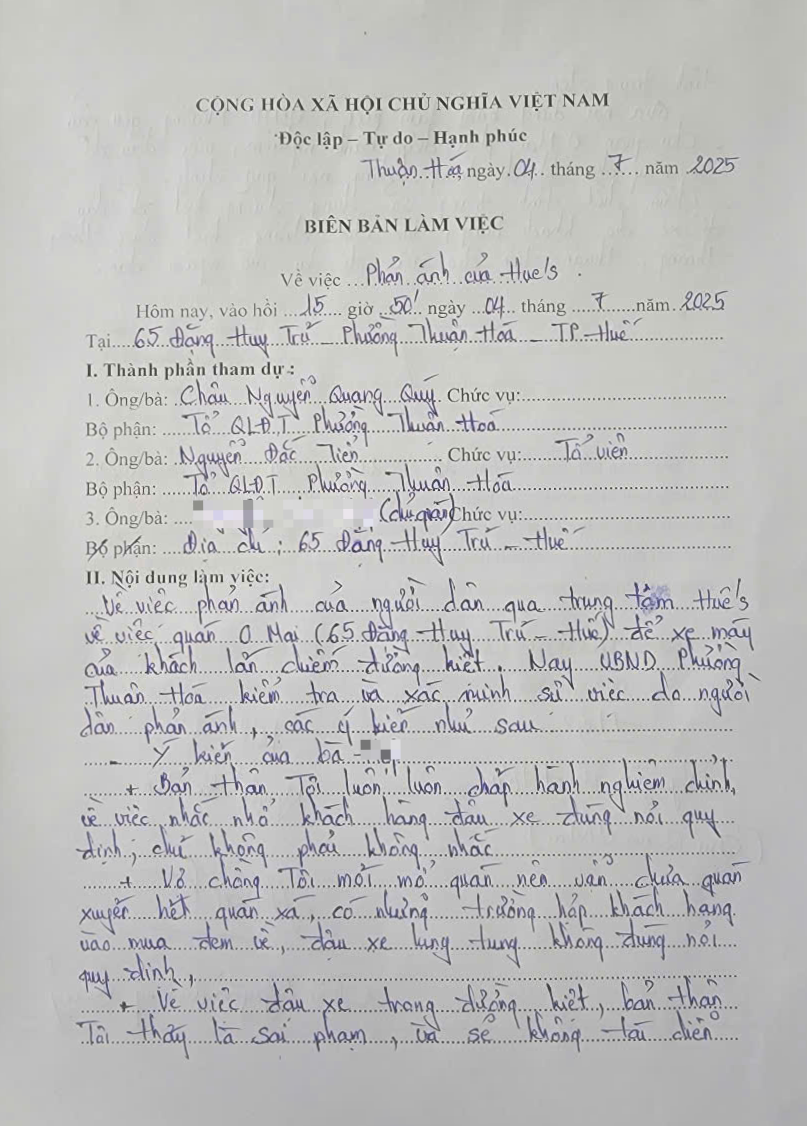 CỘNG HÒA XÃ HỘI CHỦ NGHĨA VIỆT NAM
Độc lập – Tự do – Hạnh phúc
Thuận Hoá, ngày 04 tháng 7 năm 2025
BIÊN BẢN LÀM VIỆC
Về việc Phản ánh của Hue's.
Hôm nay, vào hồi 15 giờ 50' ngày 04 tháng 7 năm 2025
Tại 65 Đặng Huy Trứ – Phường Thuận Hoá – TP Huế
I. Thành phần tham dự:
1. Ông/bà: Châu Nguyễn Quang Quý Chức vụ:
Bộ phận: Tổ QLĐT Phường Thuận Hoá
2. Ông/bà: Nguyễn Đắc Tiến Chức vụ: Tổ viên
Bộ phận: Tổ QLĐT Phường Thuận Hoá
3. Ông/bà: (chủ quán) Chức vụ:
Bộ phận: Địa chỉ: 65 Đặng Huy Trứ – Huế
II. Nội dung làm việc:
Về việc phản ánh của người dân qua trung tâm Huê's
về việc quán O Mai (65 Đặng Huy Trứ – Huế) để xe máy
của khách lấn chiếm đường kiệt. Nay UBND Phường
Thuận Hoá kiểm tra và xác minh sự việc do người
dân phản ánh, các ý kiến như sau
- Ý kiến của bà
+ Bản thân Tôi luôn luôn chấp hành nghiêm chỉnh,
về việc nhắc nhở khách hàng đâu xe đúng nơi quy
định, chứ không phải không nhắc
+ Vợ chồng Tôi mới mở quán nên vẫn chưa quán
xuyến hết quán xá, có những trường hợp khách hàng
vào mua đem về, đâu xe lung tung không đúng nơi
quy định,
+ Về việc đâu xe trong đường kiệt, bản thân
Tôi thấy là sai phạm, và sẽ không tái diễn